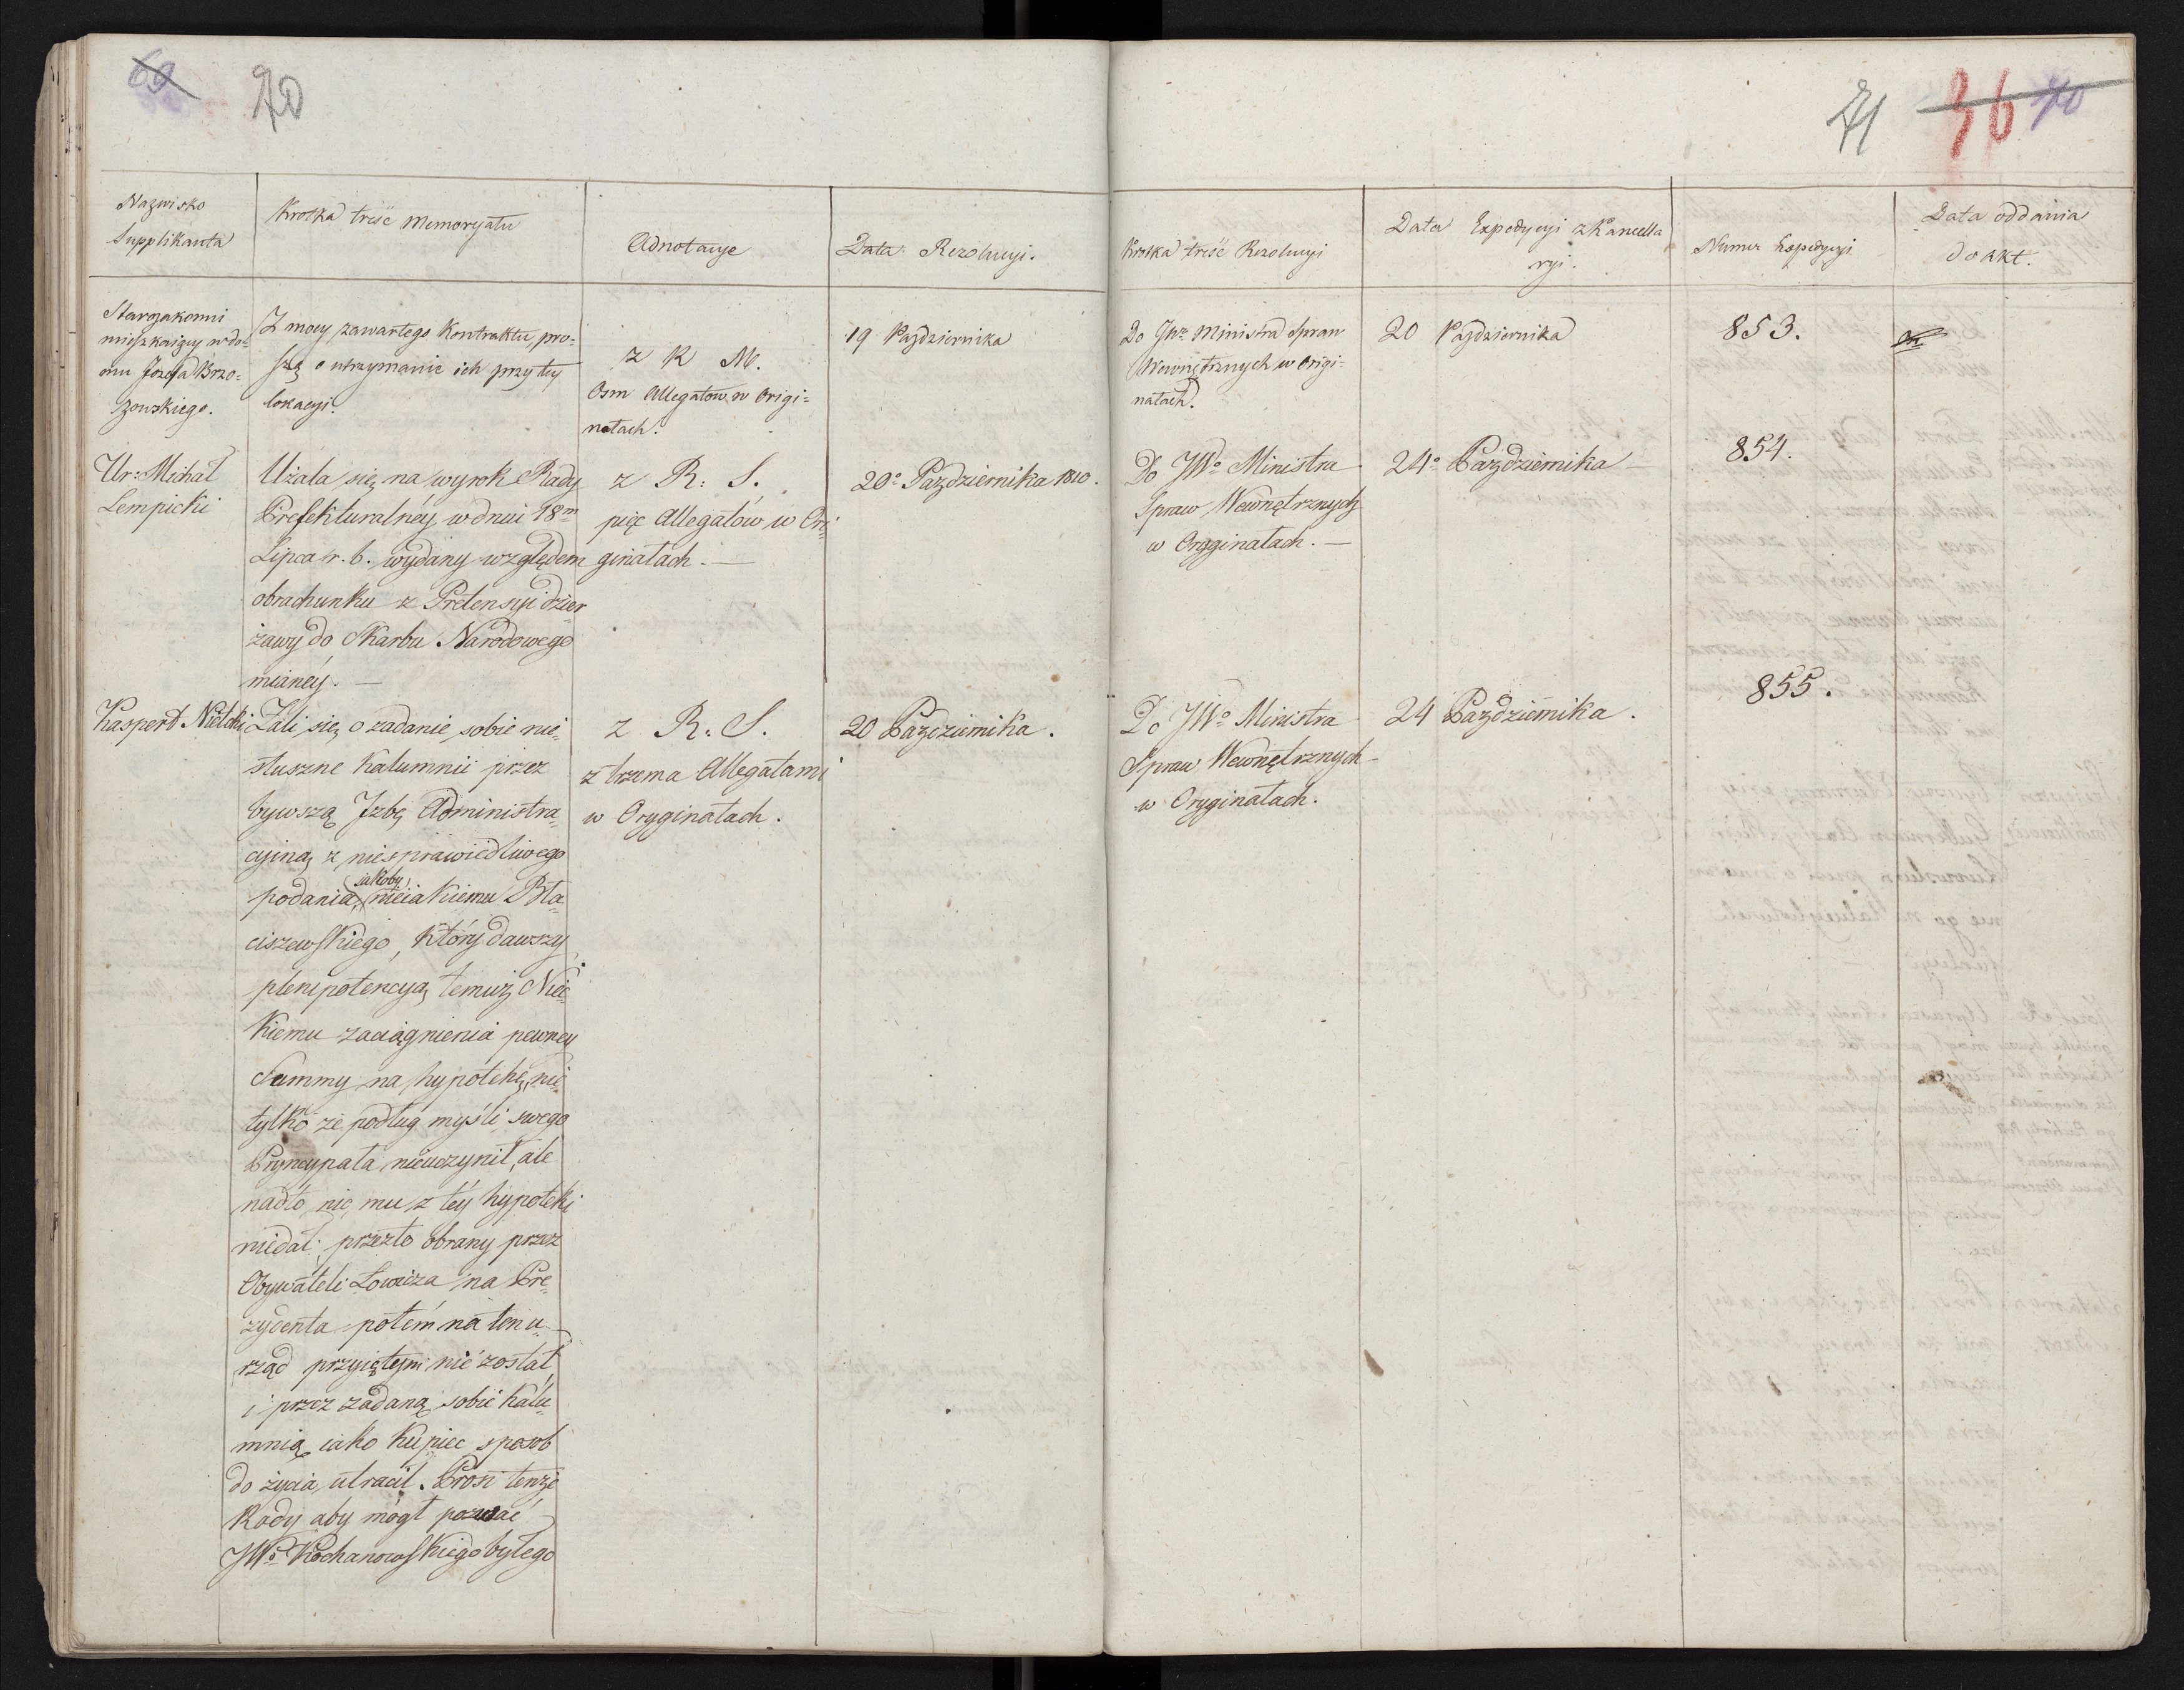 69 70
71 36 70
Nazwisko
Supplikanta
Krotka treść Memoryału
Adnotacye
Data Rezolucyi.
Krotka treść Rezolucyi
Data Expedycyi z Kancella
ryi.
Numer Expedycyi
Data oddania
do Akt.
Starozakonni
mieszkaiący w do=
mu Jozefa Brzo=
zowskiego.
Z mocy zawartego Kontraktu, pro=
szą o utrzymanie ich przy tey
lokacyi.
z R M.
Osm Allegatow w Origi=
nałach.
19 Pazdziernika
Do JWo Ministra Spraw
Wewnętrznych w Origi=
nałach.
20 Pazdziernika
853.
Ur: Michał
Lempicki
Użala się na wyrok Rady
Prefekturalnéy w dniu 18m
Lipca r. b. wydany względem
obrachunku z Pretensyi dzier
żawy do Skarbu Narodowego
mianéy. —
z R: S.
pięć Allegatów w Ori
ginałach. —
20o Pazdziernika 1810.
Do JWo Ministra
Spraw Wewnętrznych
w Oryginałach. —
24o Pazdziernika —
854.
Kaspert Nielcki
Zali się o zadanie sobie nie
słuszne Kalumnii przez
bywszą Izbę Administra
cyiną z niesprawiedliwego
podania, (jakoby) nieiakiemu Bła
ciszewskiego, Który dawszy
plenipotencyą temuż Niel
kiemu zaciągnienia pewney
Summy na hypotekę, nie
tylko że podług myśli swego
Pryncypała nieuczynił, ale
nadto nic mu z téy hypoteki
niedał; przezto obrany przez
Obywateli Łowicza na Pre
zydenta potém na ten u
rząd przyiętym nie został,
i przez zadaną sobie Kalu
mnią iako Kupiec sposob
do życia utracił. Prosi tenże
Rady aby mógł pozwać
JWo Kochanowskiego byłego
z R: S.
z trzema Allegatami
w Oryginałach.
20 Pazdziernika.
Do JWo Ministra
Spraw Wewnętrznych
w Oryginałach.
24 Pazdziernika.
855.